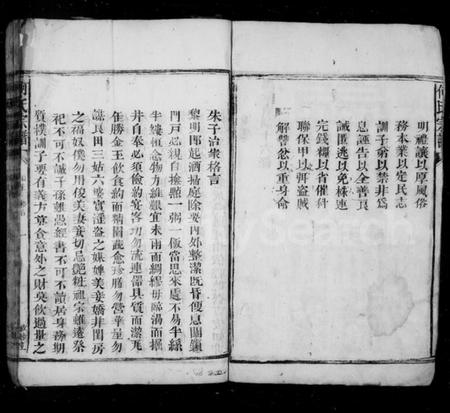 明禮讓以厚風俗
務本業以定民志
訓子弟以禁非為
息誣告以全善良
誡匿逃以免株連
完錢糧以省催科
聯保甲以弭盜賊
解讐忿以重身命
朱子治家格言
黎明即起洒掃庭除要內外整潔既昏便息關鎖
門戶必親自檢點一粥一飯當思來處不易半絲
半縷恒念物力維艱宜未雨而綢繆毋臨渴而掘
井自奉必須儉約宴客切勿流連器具質而潔瓦
缶勝金玉飲食約而精園蔬愈珍饈勿營華屋勿
謀良田三姑六婆實淫盜之媒婢美妾嬌非閨房
之福奴僕勿用俊美妻妾切忌艷粧祖宗雖遠祭
祀不可不誠子孫雖愚經書不可不讀居身務期
質樸訓子要有義方莫貪意外之財莫飲過量之